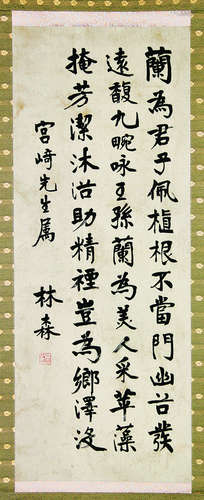 蘭為君子佩植根不當門幽谷發
遠馥九畹咏王孫蘭為美人采苹藻
掩芳潔沐浴助精禋豈為鄉澤没
宮崎先生属
林森